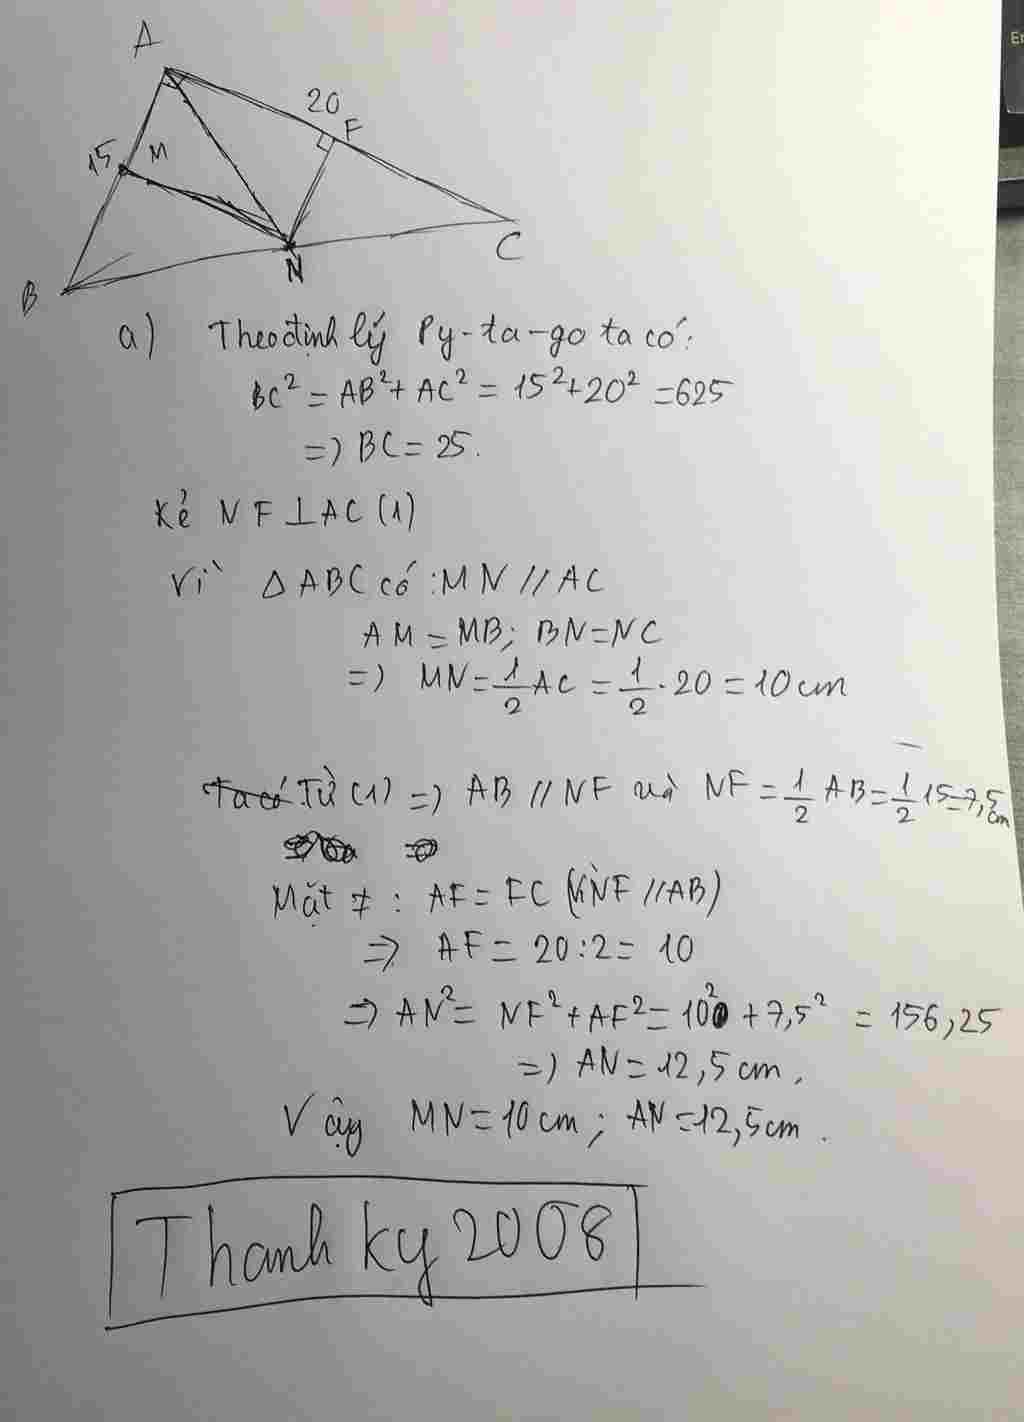 A
20
F
15
M
B
N
C
a) Theo định lý Py-ta-go ta có:
BC² = AB² + AC² = 15² + 20² = 625
=) BC = 25.
Kẻ NF ⊥ AC (1)
Vì Δ ABC có : MN // AC
AM = MB; BN = NC
=) MN = 1/2 AC = 1/2 . 20 = 10 cm
Từ (1) =) AB // NF và NF = 1/2 AB = 1/2 15 = 7,5 cm
Mặt ≠ : AF = FC (Vì NF // AB)
=> AF = 20 : 2 = 10
=> AN² = NF² + AF² = 10² + 7,5² = 156,25
=) AN = 12,5 cm.
Vậy MN = 10 cm ; AN = 12,5 cm.
Thanh ky 2008